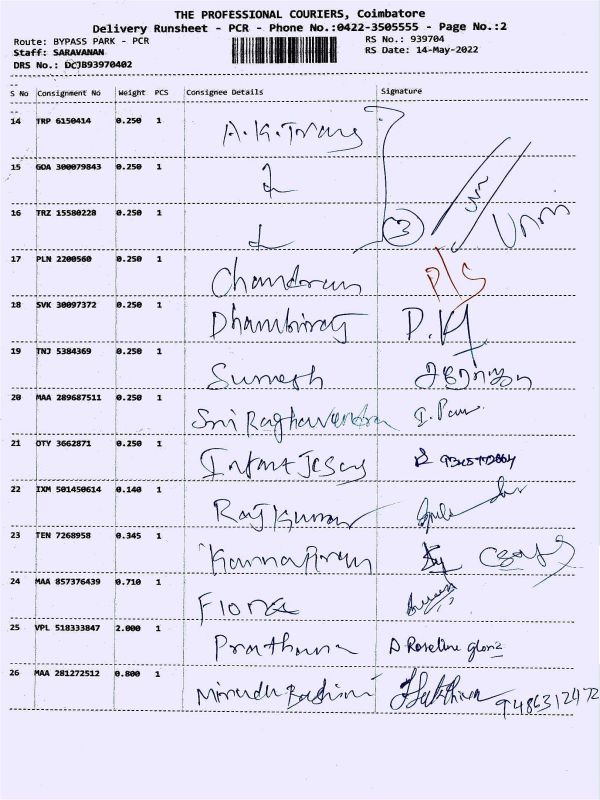 THE PROFESSIONAL COURIERS, Coimbatore
Delivery Runsheet - PCR - Phone No.:0422-3505555 - Page No.:2
Route: BYPASS PARK - PCR RS No.: 939704
Staff: SARAVANAN RS Date: 14-May-2022
DRS No.: DCJB93970402
S No Consignment No Weight PCS Consignee Details Signature
14 TRP 6150414 0.250 1 A.K.
15 GOA 300079843 0.250 1
16 TRZ 15580228 0.250 1 3
17 PLN 2200560 0.250 1 Chandran P/S
18 SVK 30097372 0.250 1 Dhambiraj
19 TNJ 5384369 0.250 1 Sumesh
20 MAA 289687511 0.250 1 Sri Raghavendra
21 OTY 3662871 0.250 1 Infant
22 IXM 501450614 0.140 1 Raj Kumar
23 TEN 7268958 0.345 1
24 MAA 857376439 0.710 1 Fiona
25 VPL 518333847 2.000 1 Prarthana
26 MAA 281272512 0.800 1